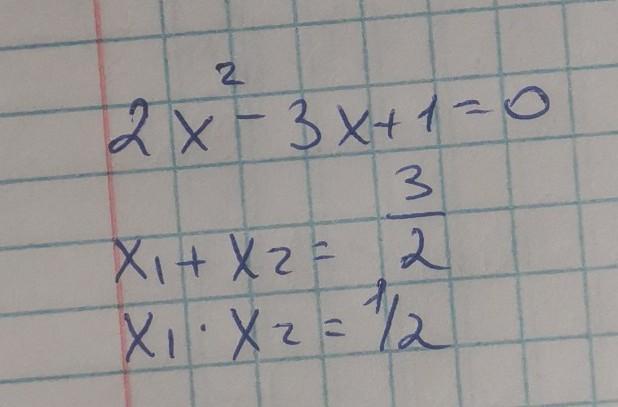 2x² - 3x + 1 = 0
x₁ + x₂ = 3/2
x₁ · x₂ = 1/2